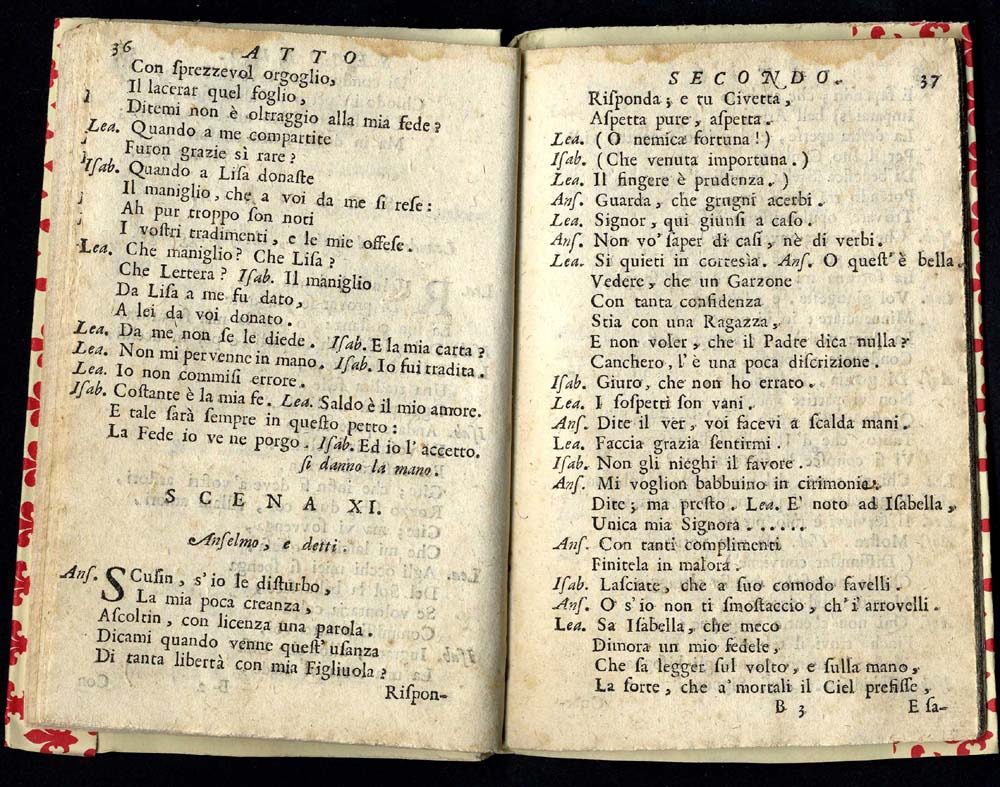 36 ATTO
Con ſprezzevol orgoglio,
Il lacerar quel foglio,
Ditemi non è oltraggio alla mia fede?
Lea. Quando a me compartite
Furon grazie sì rare?
Iſab. Quando a Liſa donaſte
Il maniglio, che a voi da me ſi reſe:
Ah pur troppo ſon noti
I voſtri tradimenti, e le mie offeſe.
Lea. Che maniglio? Che Liſa?
Che Lettera? Iſab. Il maniglio
Da Liſa a me fu dato,
A lei da voi donato.
Lea. Da me non ſe le diede. Iſab. E la mia carta?
Lea. Non mi pervenne in mano. Iſab. Io fui tradita.
Lea. Io non commiſi errore.
Iſab. Coſtante è la mia fe. Lea. Saldo è il mio amore.
E tale ſarà ſempre in queſto petto:
La Fede io ve ne porgo. Iſab. Ed io l'accetto.
ſi danno la mano.
SCENA XI.
Anſelmo, e detti.
Anſ. SCuſin, s'io le diſturbo,
La mia poca creanza,
Aſcoltin, con licenza una parola.
Dicami quando venne queſt'uſanza
Di tanta libertà con mia Figliuola?
Riſpon-
SECONDO. 37
Riſponda; e tu Civetta,
Aſpetta pure, aſpetta.
Lea. (O nemica fortuna!)
Iſab. (Che venuta importuna.)
Lea. Il fingere è prudenza.)
Anſ. Guarda, che grugni acerbi.
Lea. Signor, qui giunſi a caſo.
Anſ. Non vo' ſaper di caſi, nè di verbi.
Lea. Si quieti in cortesìa. Anſ. O queſt'è bella,
Vedere, che un Garzone
Con tanta confidenza
Stia con una Ragazza,
E non voler, che il Padre dica nulla?
Canchero, l'è una poca diſcrizione.
Iſab. Giuro, che non ho errato.
Lea. I ſoſpetti ſon vani.
Anſ. Dite il ver, voi facevi a ſcalda mani.
Lea. Faccia grazia ſentirmi.
Iſab. Non gli nieghi il favore.
Anſ. Mi voglion babbuino in cirimonia.
Dite; ma preſto. Lea. E' noto ad Iſabella,
Unica mia Signora ......
Anſ. Con tanti complimenti
Finitela in malora.
Iſab. Laſciate, che a ſuo comodo favelli.
Anſ. O s'io non ti ſmoſtaccio, ch'i' arrovelli.
Lea. Sa Iſabella, che meco
Dimora un mio fedele,
Che ſa legger ſul volto, e ſulla mano,
La ſorte, che a' mortali il Ciel prefiſſe,
B 3 E ſa-